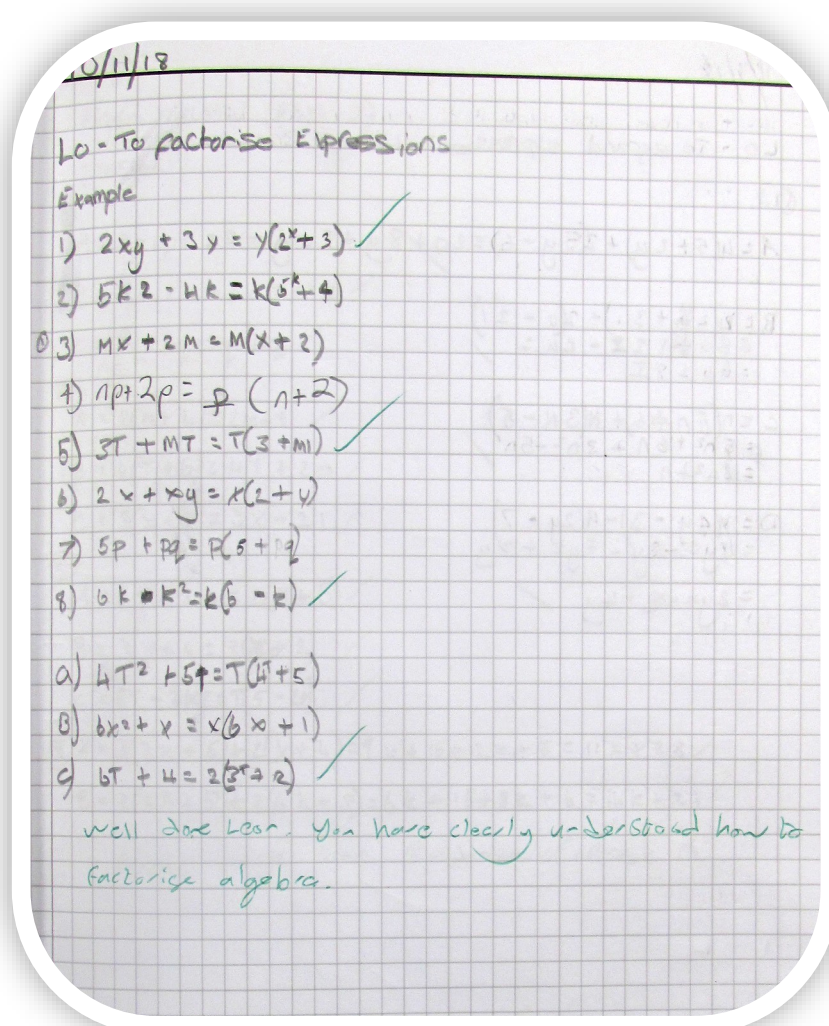 10/11/18
LO - To factorise Expressions
Example
1) 2xy + 3y = y(2x + 3)
2) 5k2 - 4k = k(5k + 4)
3) mx + 2m = m(x + 2)
4) np + 2p = p (n + 2)
5) 3T + MT = T(3 + M)
6) 2x + xy = x(2 + y)
7) 5p + pq = p(5 + q)
8) 6k - k² = k(6 - k)
a) 4T² + 5T = T(4T + 5)
B) 6x² + x = x(6x + 1)
c) 6T + 4 = 2(3T + 2)
well done Leon. You have clearly understood how to
factorise algebra.